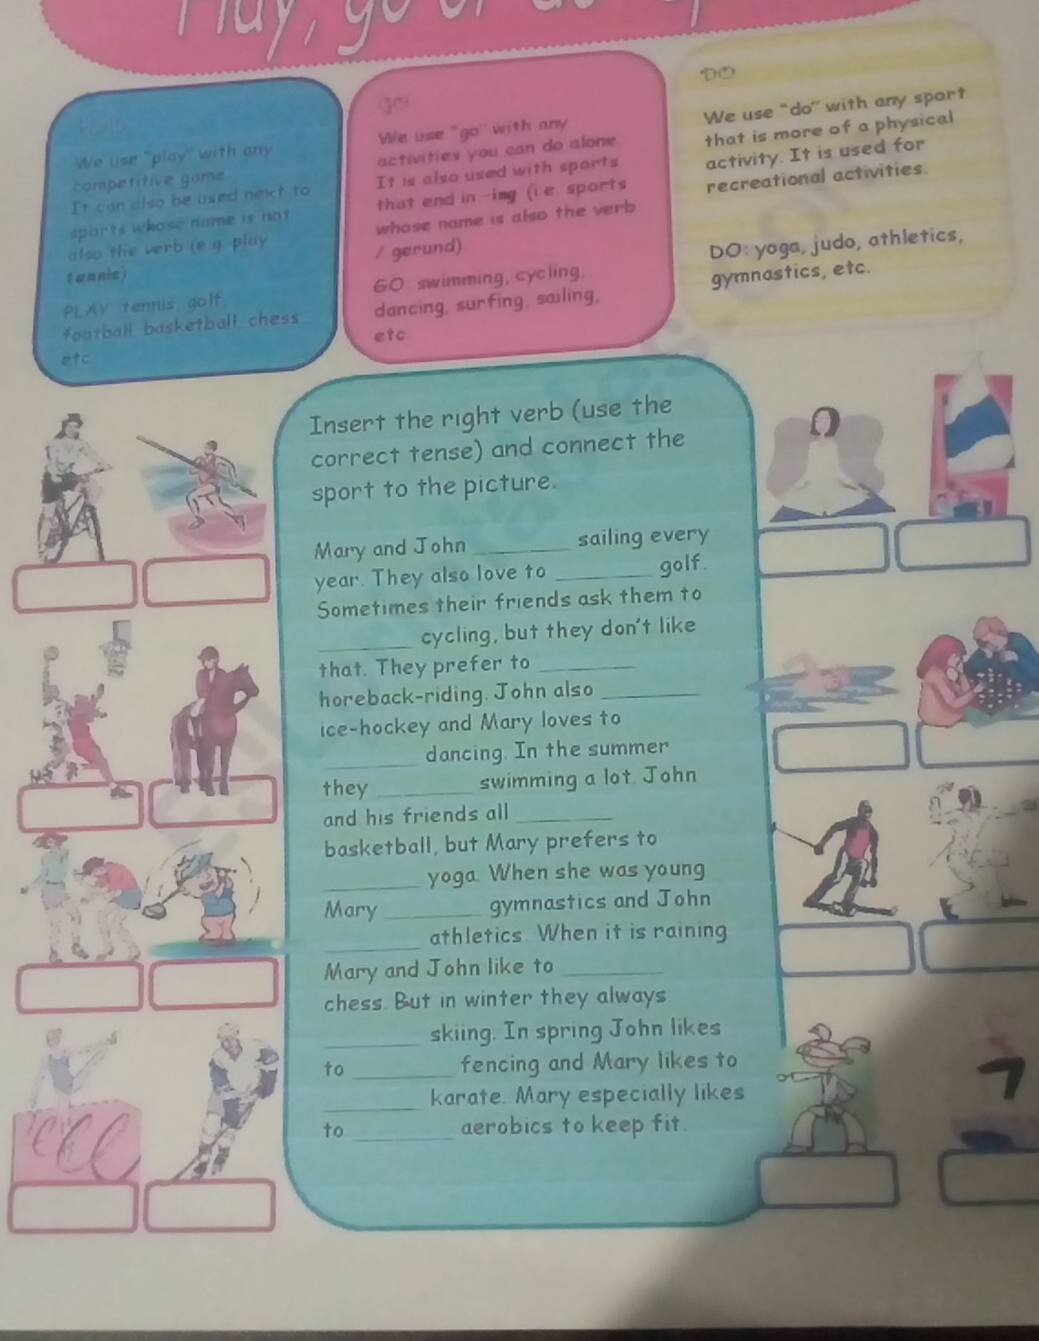 Play, go or do
We use "play" with any
competitive game.
It can also be used next to
sports whose name is not
also the verb (e.g. play
tennis)
PLAY tennis, golf,
football, basketball, chess
etc
GO
We use "go" with any
activities you can do alone.
It is also used with sports
that end in -ing (i.e. sports
whose name is also the verb
/ gerund)
GO swimming, cycling,
dancing, surfing, sailing,
etc
DO
We use "do" with any sport
that is more of a physical
activity. It is used for
recreational activities.
DO: yoga, judo, athletics,
gymnastics, etc.
Insert the right verb (use the
correct tense) and connect the
sport to the picture.
Mary and John ________ sailing every
year. They also love to ________ golf.
Sometimes their friends ask them to
________ cycling, but they don't like
that. They prefer to ________
horeback-riding. John also ________
ice-hockey and Mary loves to
________ dancing. In the summer
they ________ swimming a lot. John
and his friends all ________
basketball, but Mary prefers to
________ yoga. When she was young
Mary ________ gymnastics and John
________ athletics. When it is raining
Mary and John like to ________
chess. But in winter they always
________ skiing. In spring John likes
to ________ fencing and Mary likes to
________ karate. Mary especially likes
to ________ aerobics to keep fit.